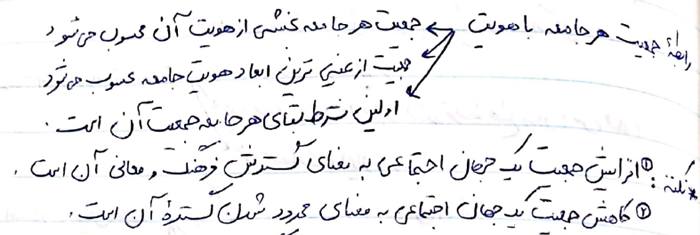 رابطهٔ جمعیت هر جامعه با هویت ← جمعیت هر جامعه بخشی از هویت آن محسوب می‌شود
جمعیت از عینی ترین ابعاد هویت جامعه محسوب می‌شود
اولین شرط بقای هر جامعه جمعیت آن است.
* نکته: ① افزایش جمعیت یک جهان اجتماعی به معنای گسترش فرهنگ و معانی آن است.
② کاهش جمعیت یک جهان اجتماعی به معنای محدود شدن گسترهٔ آن است.